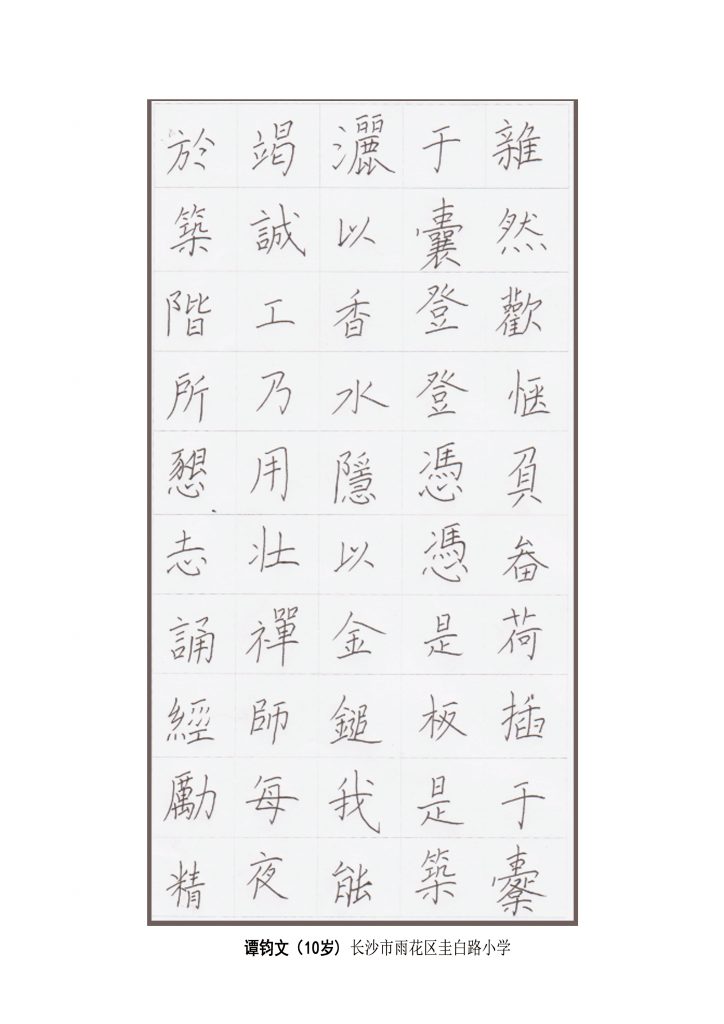 雜然歡愜負畚荷插于橐
于囊登登憑憑是板是築
灑以香水隱以金鎚我能
竭誠工乃用壯禪師每夜
於築階所懇志誦經勵精
谭钧文（10岁）长沙市雨花区圭白路小学